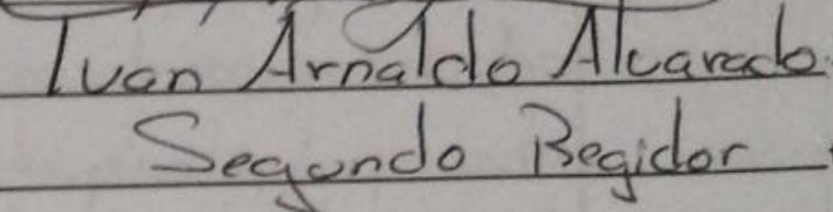 Ivan Arnaldo Alvarado.
Segundo Regidor